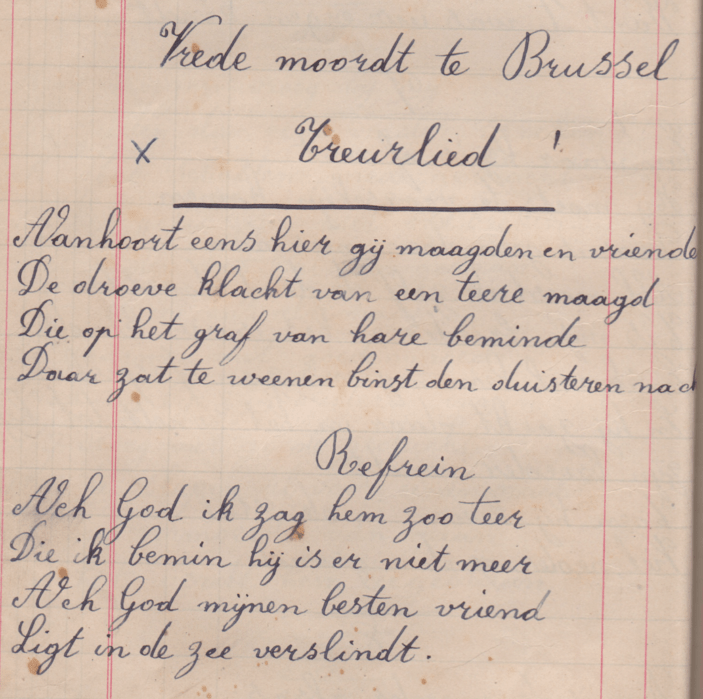 Vrede moordt te Brussel
x Treurlied !
Aanhoort eens hier gij maagden en vriende
De droeve klacht van een teere maagd
Die op het graf van hare beminde
Daar zat te weenen binst den duisteren nac
Refrein
Ach God ik zag hem zoo teer
Die ik bemin hij is er niet meer
Ach God mijnen besten vriend
Ligt in de zee verslindt.